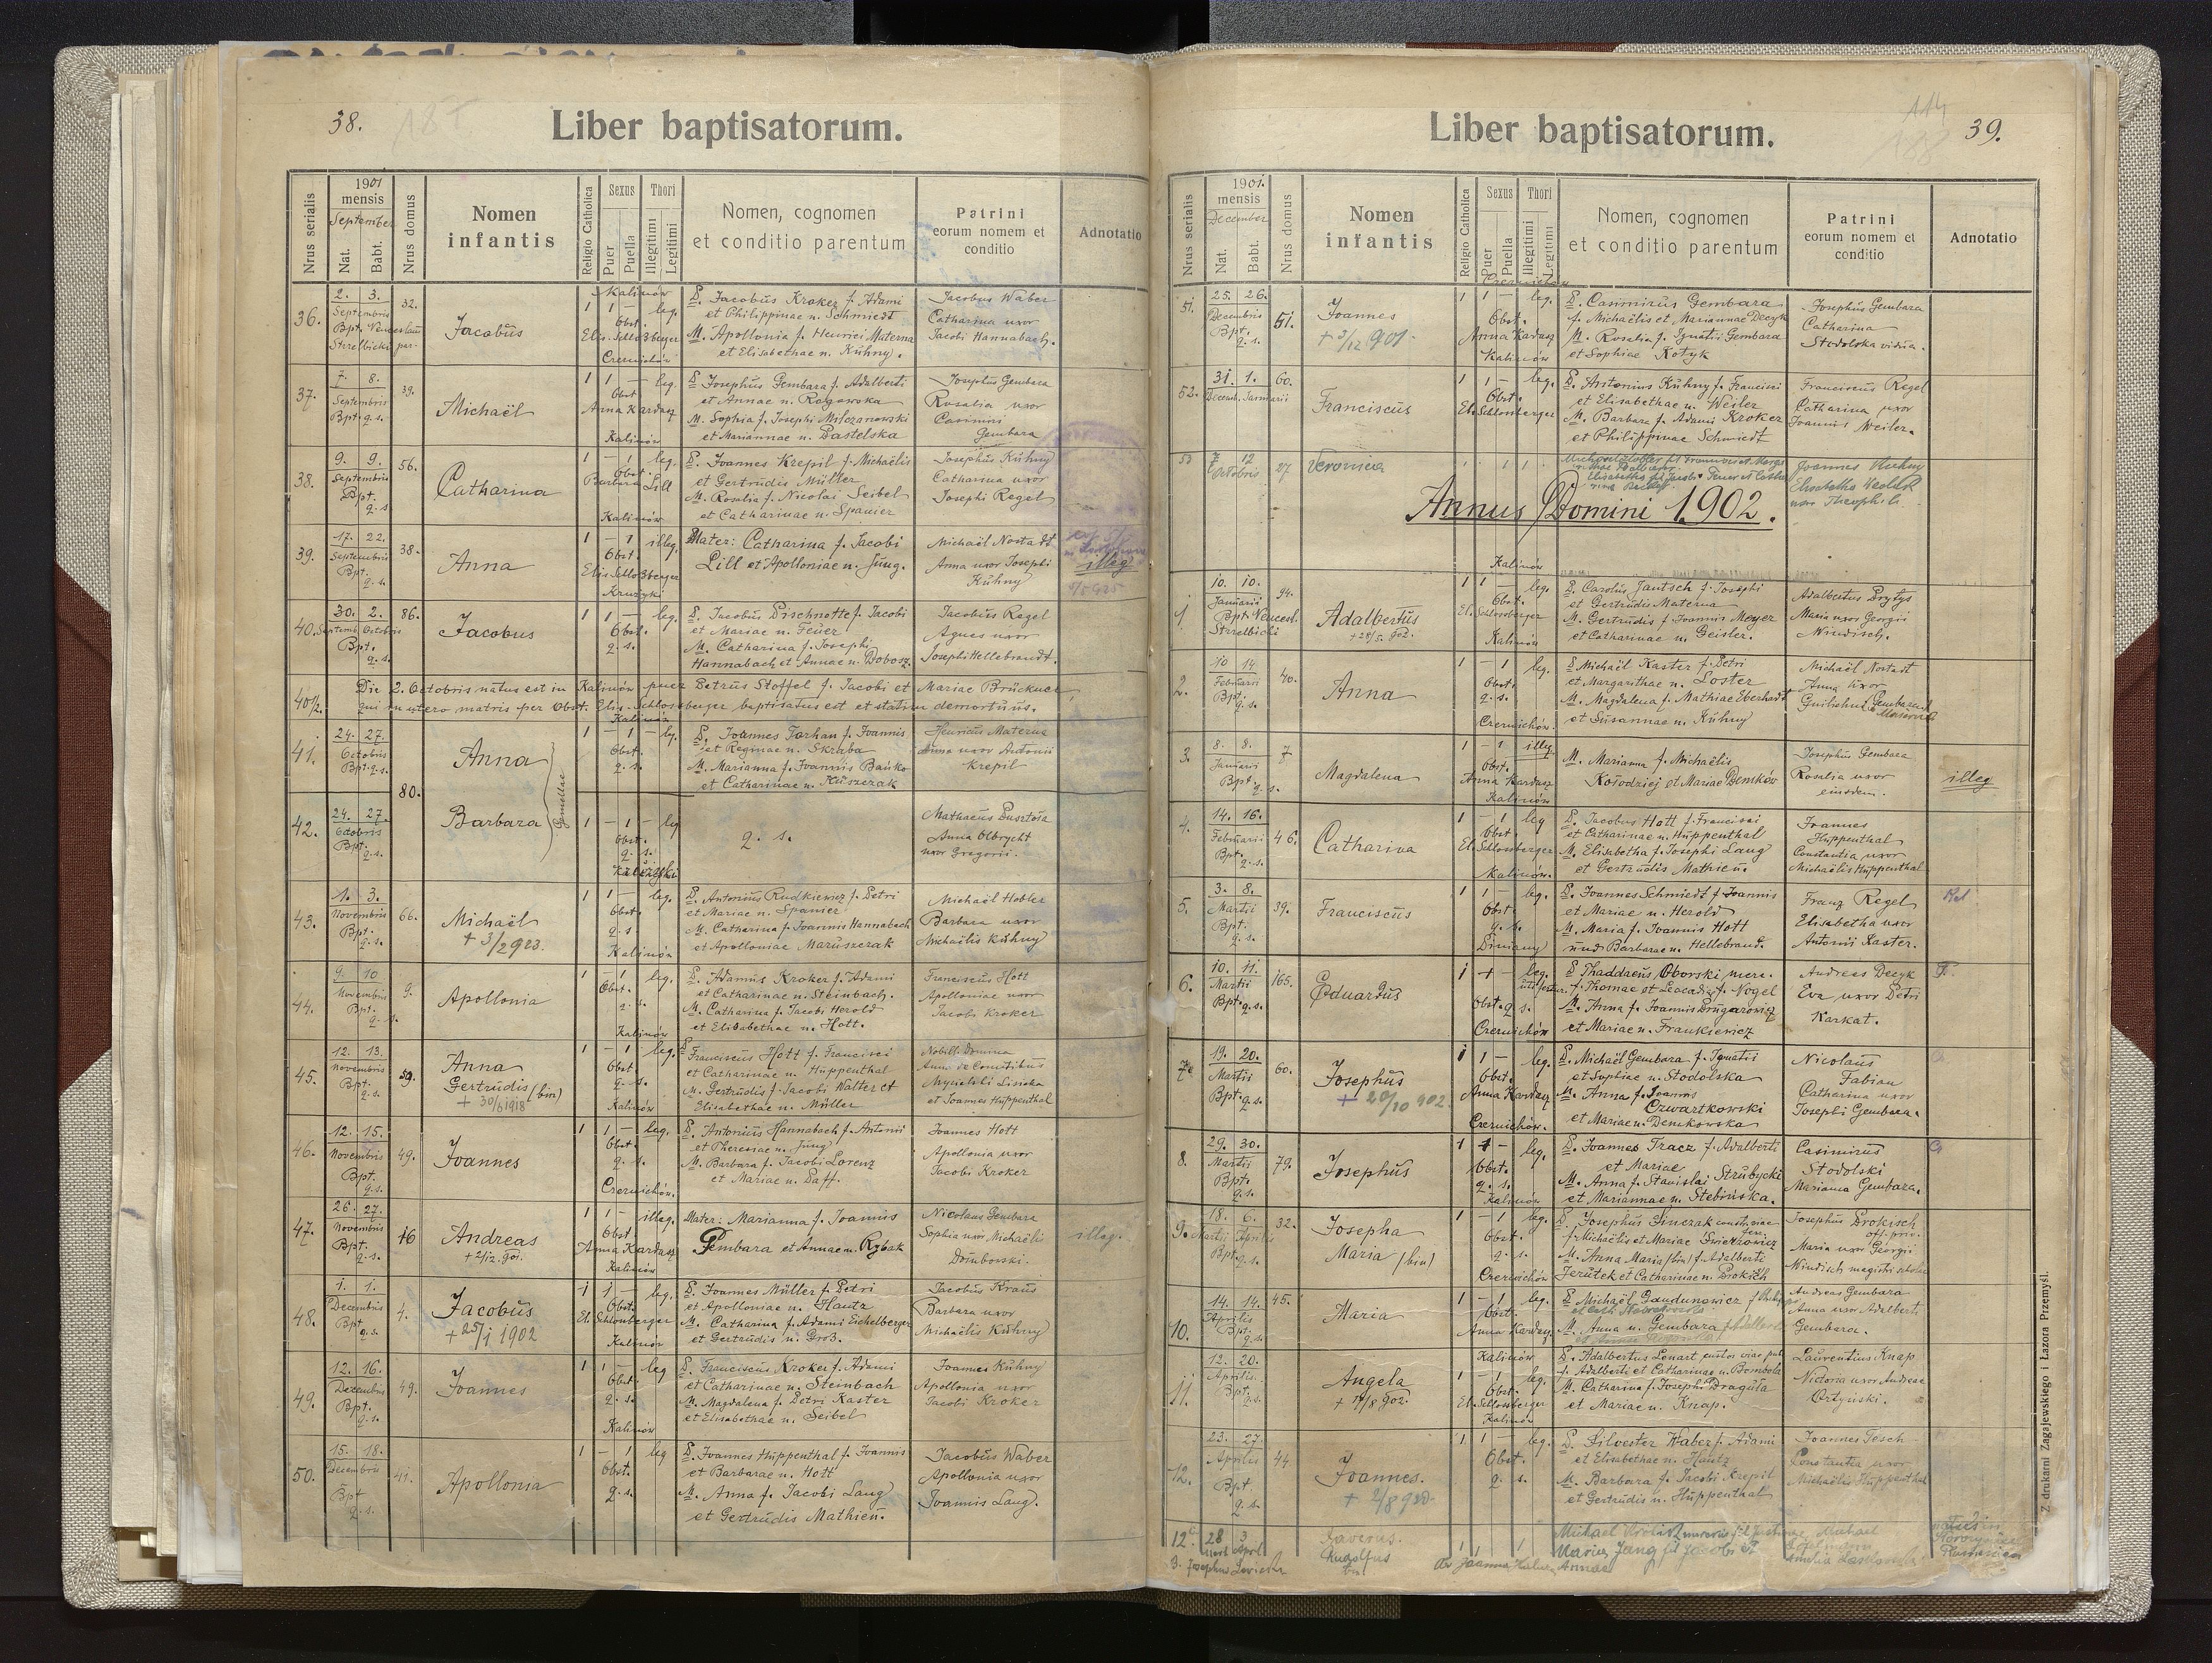 38.
Liber baptisatorum.
Nrus serialis
1901
mensis
September
Nat.
Babt.
Nrus domus
Nomen
infantis
Religio Catholica
Sexus
Puer
Puella
Thori
Illegitimi
Legitimi
Nomen, cognomen
et conditio parentum
Patrini
eorum nomem et
conditio
Adnotatio
36.
2. 3.
Septembris
Bpt. Venceslaus
Strzelbicki par-
32.
Jacobus
Kalinów
1 1 — leg.
Obst.
Elis. Schloßberger
P. Jacobus Kroker f. Adami
et Philippinae n. Schmiedt
M. Apollonia f. Henrici Materna
et Elisabethae n. Kühny.
Jacobus Waber
Catharina uxor
Jacobi Hannabach.
37.
7. 8.
Septembris
Bpt. q.s.
39.
Michaël
Czerwichów
1 1 — leg.
Obst
Anna Kardasz
P. Josephus Gembara f. Adalberti
et Annae n. Rogowska
M. Sophia f. Josephi Milczanowski
et Mariannae n. Pastelska
Josephus Gembara
Rosalia uxor
Casimiri
Gembara
38.
9. 9.
Septembris
Bpt.
q.s
56.
Catharina
Kalinów
1 — 1 leg.
Obst.
Barbara Lill
P. Joannes Krepil f. Michaëlis
et Gertrudis Müller
M. Rosalia f. Nicolai Seibel
et Catharinae n. Spanier
Josephus Kühny
Catharina uxor
Josephi Regel
39.
17. 22.
Septembris
Bpt.
q.s.
38.
Anna
Kalinów
1 — 1 illeg.
Obst.
Elis. Schloßberger
Mater: Catharina f. Jacobi
Lill et Apolloniae n. Jung.
Michaël Nostadt
Anna uxor Josephi
Kühny
illeg
40.
30. 2.
Septemb. Octobris
Bpt.
q.s.
86.
Jacobus
Kruzyki
1 1 — leg.
Obst.
q. s.
P. Jacobus Dischnotte f. Jacobi
et Mariae n. Feuer
M. Catharina f. Josephi
Hannabach et Annae n. Bobosz.
Jacobus Regel
Agnes uxor
Josephi Hellebrandt.
40½.
Die 2. Octobris natus est in Kalinów puer Petrus Stoffel f. Jacobi et Mariae Brückner,
qui in utero matris per Obst. Elis. Schlossberger baptisatus est et statim demortuus.
41.
24. 27.
Octobris
Bpt. q.s.
80.
Anna
Gemellae
Kalinów
1 — 1 — leg.
Obst.
q. s.
P. Joannes Torhan f. Joannis
et Reginae n. Skraba
M. Marianna f. Joannis Bańko
et Catharinae n. Küszczak
Henricus Materna
Anna uxor Antonii
Krepil
42.
24. 27.
Octobris
Bpt.
q.s.
Barbara
1 — 1 — leg
Obst.
q. s.
q. s.
Mathaeus Pusztoia
Anna Olbrycht
uxor Gregorii.
43.
1. 3.
Novembris
Bpt.
q.s.
66.
Michaël
+ 3/2 923.
1 1 — leg.
Obst.
q. s
P. Antonius Rudkiewicz f. Petri
et Mariae n. Spanier
M. Catharina f. Joannis Hannabach
et Apolloniae Maruszczak
Michaël Hobler
Barbara uxor
Michaëlis Kühny
44.
9. 10
Novembris
Bpt.
q. s.
9.
Apollonia
Kalinów
1 — 1 leg.
Obst.
q. s.
P. Adamus Kroker f. Adami
et Catharinae n. Steinbach.
M. Catharina f. Jacobi Herold
et Elisabethae n. Hott.
Franciscus Hott
Apolloniae uxor
Jacobi Kroker
45.
12. 13.
Novembris
Bpt.
q.s.
59.
Anna
Gertrudis (bin)
+ 30/6 1918
Kalinów
1 — 1 leg.
Obst
q. s.
P. Franciscus Hott f. Francisci
et Catharinae n. Huppenthal
M. Gertrudis f. Jacobi Walter et
Elisabethae n. Müller
Nobilis Domina
et Joannes Huppenthal
46.
12. 15.
Novembris
Bpt.
q.s.
49.
Joannes
Kalinów
1 1 — leg.
Obst.
q. s.
P. Antonius Hannabach f. Antonii
et Theresiae n. Jung
M. Barbara f. Jacobi Lorenz
et Mariae n. Daff.
Joannes Hott
Apollonia uxor
Jacobi Kroker
47.
26. 27.
Novembris
Bpt.
q.s.
16
Andreas
+ 2/12. 901.
Czerwichów.
1 1 — illeg.
Obst.
Anna Kardasz
Mater: Marianna f. Joannis
Gembara et Annae n. Rybak
Nicolaus Gembara
Sophia uxor Michaëlis
Domborski.
illeg.
48.
1. 1.
Decembris
Bpt
q.s.
4.
Jacobus
+ 25/1 1902
Kalinów
1 1 — leg.
Obst.
El. Schlossberger
P. Joannes Müller f. Petri
et Apolloniae n. Hautz
M. Catharina f. Adami Eichelberger
et Gertrudis n. Groß.
Jacobus Kraus
Barbara uxor
Michaëlis Kühny
49.
12. 16.
Decembris
Bpt.
q.s.
49.
Joannes
Kalinów
1 1 — leg
Obst.
q. s.
P. Franciscus Kroker f. Adami
et Catharinae n. Steinbach
M. Magdalena f. Petri Kaster
et Elisabethae n. Seibel
Joannes Kühny
Apollonia uxor
Jacobi Kroker
50.
15. 18.
Decembris
Bpt
q.s.
41.
Apollonia
Kalinów
1 — 1 leg
Obst.
q. s.
P. Joannes Huppenthal f. Joannis
et Barbarae n. Hott
M. Anna f. Jacobi Lang
et Gertrudis Mathieu.
Jacobus Waber
Apollonia uxor
Joannis Lang.
39.
114
188
Liber baptisatorum.
Nrus serialis
1901.
mensis
December
Nat.
Babt.
Nrus domus
Nomen
infantis
Religio Catholica
Sexus
Puer
Puella
Thori
Illegitimi
Legitimi
Nomen, cognomen
et conditio parentum
Patrini
eorum nomem et
conditio
Adnotatio
51
25. 26.
Decembris
Bpt.
q.s.
51.
Joannes
+ 3/12 901.
Czerwichów
1 1 — leg.
Obst.
Anna Kardasz
P. Casimirus Gembara
f. Michaëlis et Mariannae Decyk
M. Rosalia f. Ignatii Gembara
et Sophiae Kotyk
Josephus Gembara
Catharina
Stodolska vidua.
52.
31. 1.
Decemb. Januarii
60.
Franciscus
Kalinów
1 1 — leg.
Obst.
El. Schlossberger
P. Antonius Kühny f. Francisci
et Elisabethae n. Weiler
M. Barbara f. Adami Kroker
et Philippinae Schmiedt
Franciscus Regel
Catharina uxor
Joannis Weiler.
53
7 12
Octobris
27
Veronica
Joannes Kuhny
Elisabetha
uxor Theophili
Annus Domini 1902.
1
10. 10.
Januarii
Bpt. Vencesl.
Strzelbicki
94.
Adalbertus
+ 28/5. 902.
Kalinów
1 1 — leg.
Obst.
El. Schlossberger
P. Carolus Jautsch f. Josephi
et Gertrudis Materna
M. Gertrudis f. Joannis Meyer
et Catharinae n. Geisler.
Adalbertus Prytys
Maria uxor Georgii
Windisch.
2.
10 14
Februarii
Bpt.
q.s.
40.
Anna
Kalinów
1 — 1 leg.
Obst.
q. s.
P. Michaël Kaster f. Petri
et Margarithae n. Loster
M. Magdalena f. Mathiae Eberhardt
et Susannae n. Kühny
Michaël Nostadt
Anna uxor
Guilielmi
3.
8. 8.
Januarii
Bpt q. s.
7
Magdalena
Czerwichów.
1 — 1 illeg.
Obst.
Anna Kardasz
M. Marianna f. Michaëlis
Kołodziej et Mariae Demków
Josephus Gembara
Rosalia uxor
eiusdem.
illeg
4.
14. 16.
Februarii
Bpt.
q.s.
46.
Catharina
Kalinów
1 — 1 leg
Obst.
El. Schlossberger
P. Jacobus Hott f. Francisci
et Catharinae n. Huppenthal
M. Elisabetha f. Josephi Lang
et Gertrudis Mathieu.
Joannes
Huppenthal
Constantia uxor
Michaëlis Huppenthal
5.
3. 8.
Martii
Bpt.
q.s.
39.
Franciscus
Kalinów.
1 1 — leg.
Obst.
q. s.
P. Joannes Schmiedt f. Joannis
et Mariae n. Herold
M. Maria f. Joannis Hott
und Barbarae n. Hellebrand.
Franz Regel
Elisabetha uxor
Antonii Kaster.
6.
10. 11.
Martii
Bpt. q.s.
165.
Eduardus
1 + — leg.
Obst. q. s.
P. Thaddaeus Oborski
f. Thomae et Leocadiae f. Nogel
M. Anna f. Joannis Drugarowicz
et Mariae n. Frankiewicz
Andreas Decyk
Eva uxor Petri
Karkat.
7.
19. 20.
Martii
Bpt. q.s.
60.
Josephus
+ 20/10 902.
Czerwichów
1 1 — leg.
Obst.
Anna Kardasz
P. Michaël Gembara f. Ignatii
et Sophiae n. Stodolska
M. Anna f. Joannis
Czwartkowski
et Mariae n. Demkowska
Nicolaus
Fabian
Catharina uxor
Josephi Gembara.
8.
29. 30.
Martii
Bpt.
q.s.
79.
Josephus
Czerwichów.
1 1 — leg.
Obst.
q. s.
P. Joannes Tracz f. Adalberti
et Mariae
M. Anna f. Stanislai Strubycki
et Mariannae n. Stebińska.
Casimirus
Stodolski
Marianna Gembara.
9.
18. 6.
Martii Aprilis
Bpt. q.s.
32.
Josepha
Maria (bin)
Kalinów
1 — 1 leg.
Obst.
q. s.
P. Josephus Sinczak
f. Michaëlis et Mariae
M. Anna Maria (bin) f. Adalberti
Jerutek et Catharinae n. Prokisch
Josephus Prokisch
off. priv.
Maria uxor Georgii
Windisch magistri scholae
10.
14. 14.
Aprilis
Bpt.
q.s.
45.
Maria
Czerwichów
1 — 1 leg.
Obst.
Anna Kardasz
P. Michaël Gaudunowicz
M. Anna n. Gembara
Andreas Gembara
Anna uxor Adalberti
Gembara.
11.
12. 20.
Aprilis.
Bpt.
q.s.
Angela
+ 17/8 902.
Kalinów
1 — 1 leg.
Obst.
El. Schlossberger
P. Adalbertus Lenart custos viae pub.
f. Adalberti et Catharinae n. Bombola
M. Catharina f. Josephi Dragula
et Mariae n. Knap.
Laurentius Knap
Victoria uxor Andreae
Ortyński.
12.
23. 27.
Aprilis
Bpt.
q. s.
44
Joannes.
+ 2/8 920.
Kalinów
1 1 — leg.
Obst.
q. s.
P. Silvester Waber f. Adami
et Elisabethae n. Hautz
M. Barbara f. Jacobi Krepil
et Gertrudis n. Huppenthal
Joannes Tesch
Constantia uxor
Michaëlis Huppenthal
12a
28 3
Mart April
Xaverus
Rudolfus
bin
Maria Jung fil Jacobi et
Annae
Michael
Z drukarni Zagajewskiego i Łazora Przemyśl.